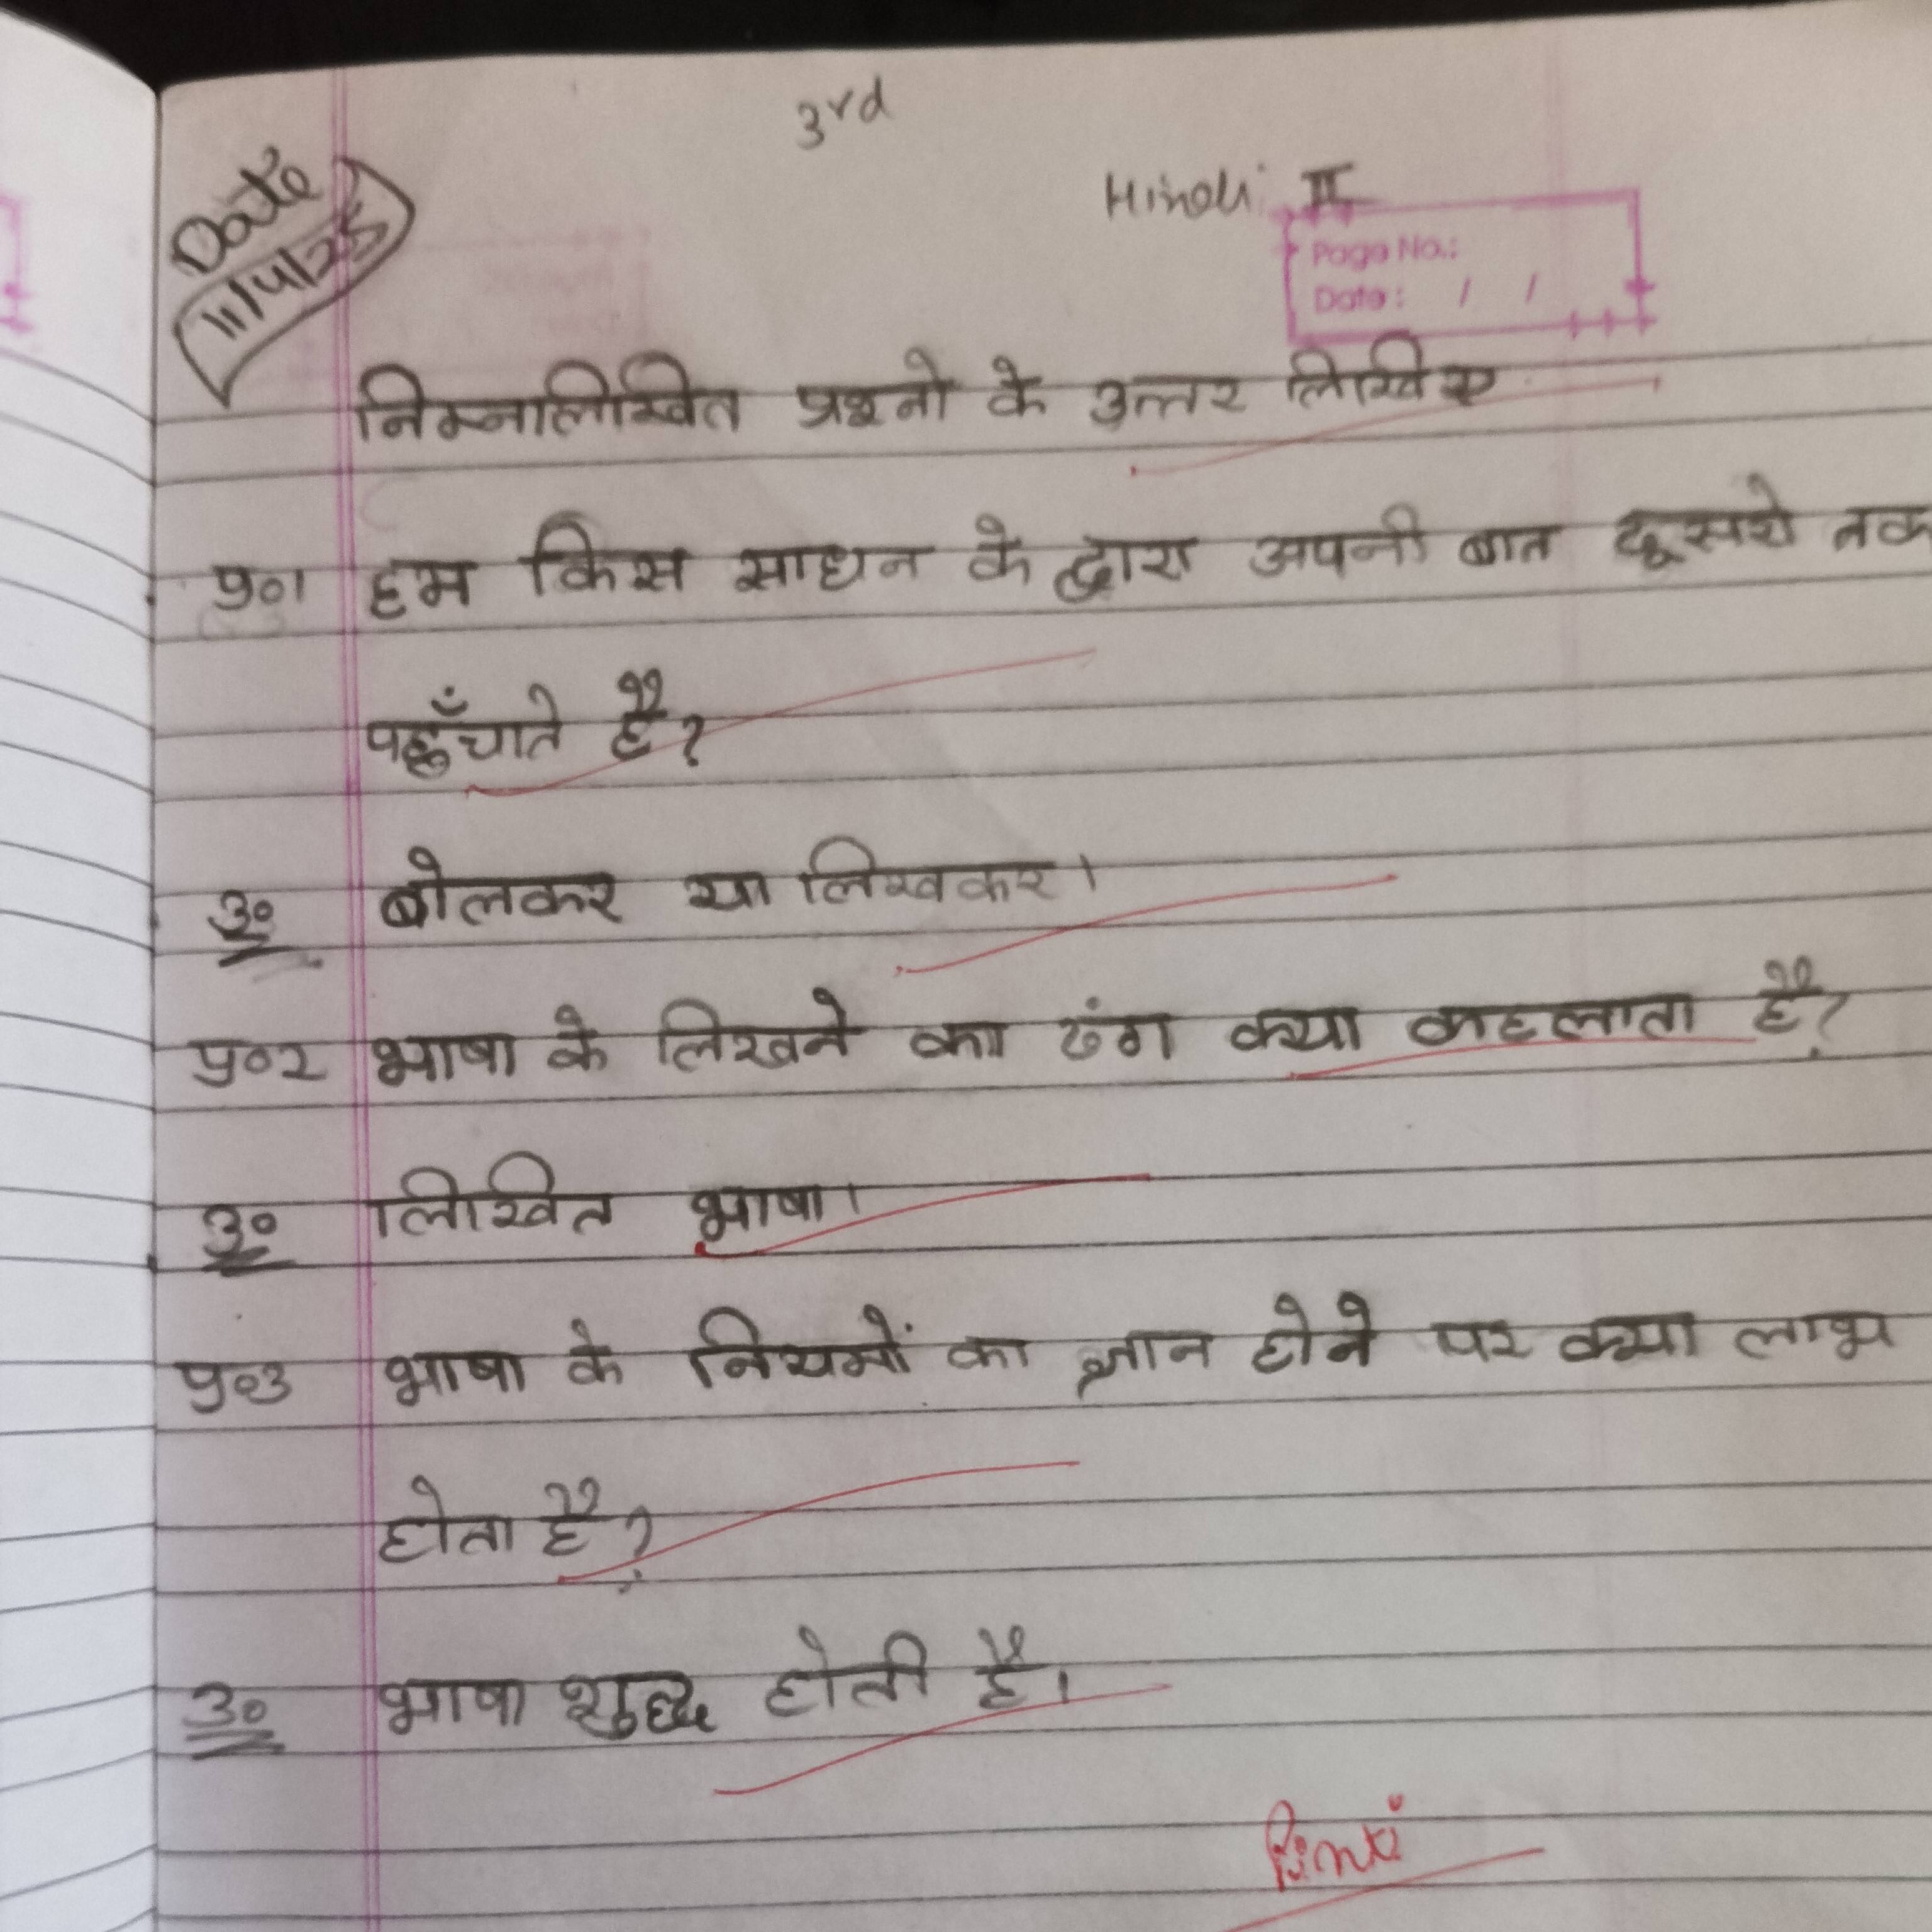 3rd
Hindi II
Date
11/4/25
Page No.:
Date: / /
निम्नलिखित प्रश्नो के उत्तर लिखिए
प्र०1 हम किस साधन के द्वारा अपनी बात दूसरो तक
पहुँचाते है?
उ० बोलकर या लिखकर।
प्र०2 भाषा के लिखने का ढंग क्या कहलाता है?
उ० लिखित भाषा।
प्र०3 भाषा के नियमों का ज्ञान होने पर क्या लाभ
होता है?
उ० भाषा शुद्ध होती है।
Pinki